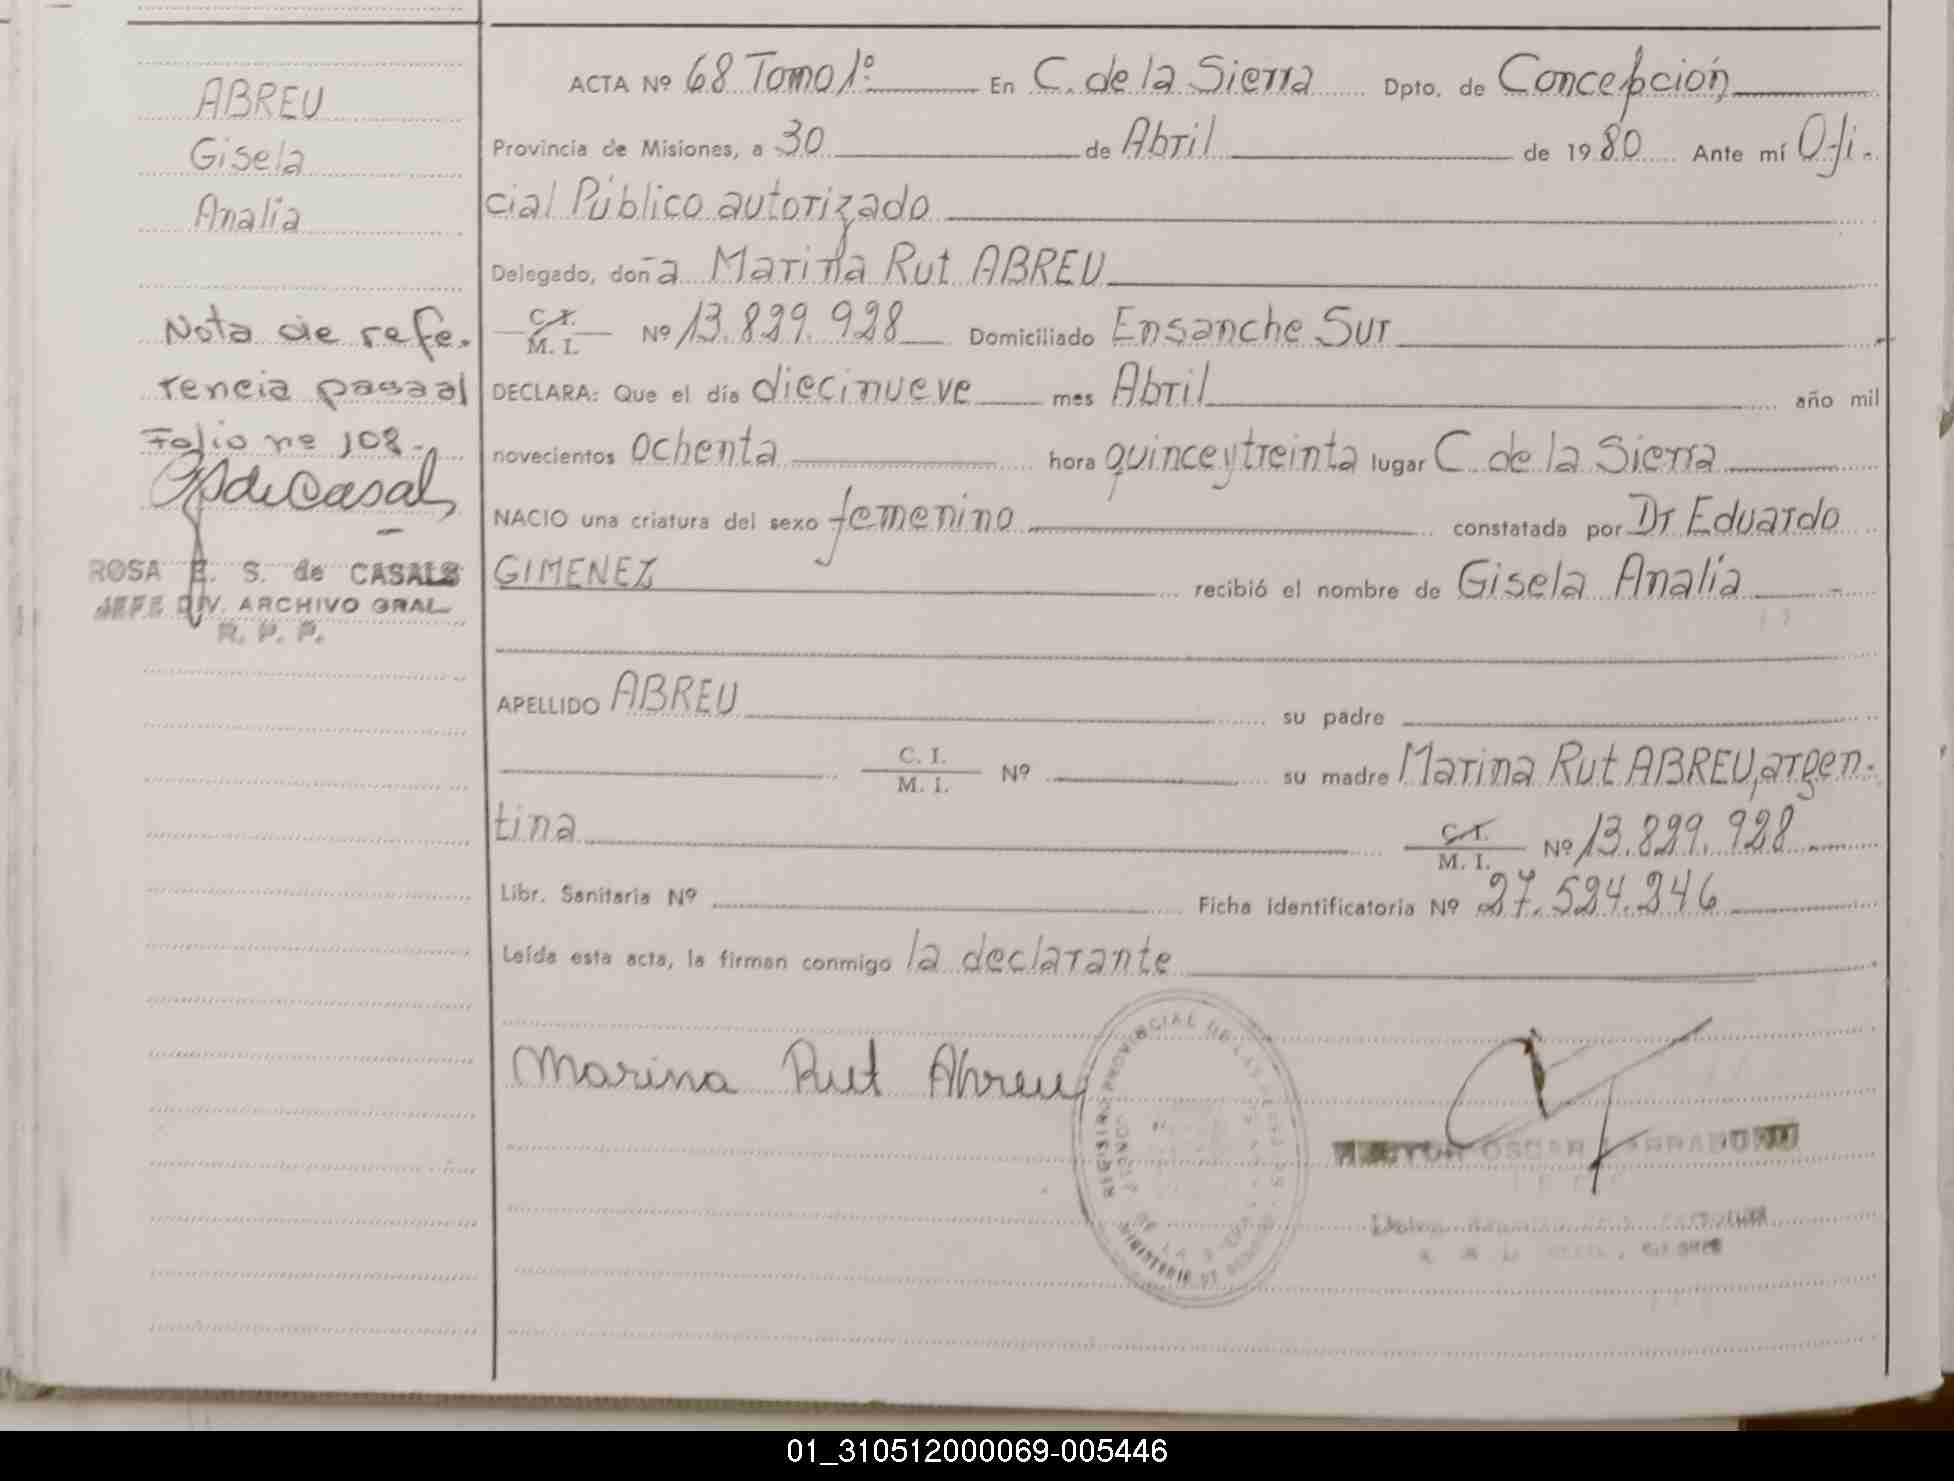 ABREU
Gisela
Analía
Nota de refe-
rencia pasa al
Folio nº 108.-
ROSA E. S. de CASALS
JEFE DIV. ARCHIVO GRAL
R. P. P.
ACTA Nº 68 Tomo 1º En C. de la Sierra Dpto. de Concepción
Provincia de Misiones, a 30 de Abril de 1980 Ante mí Ofi-
cial Público autorizado
Delegado, doña Marina Rut ABREU
C. I.
M. I. Nº 13.829.928 Domiciliado Ensanche Sur
DECLARA: Que el día diecinueve mes Abril año mil
novecientos ochenta hora quince y treinta lugar C. de la Sierra
NACIO una criatura del sexo femenino constatada por Dr Eduardo
GIMENEZ recibió el nombre de Gisela Analía
APELLIDO ABREU su padre
C. I.
M. I. Nº su madre Marina Rut ABREU, argen-
tina C. I.
M. I. Nº 13.829.928
Libr. Sanitaria Nº Ficha identificatoria Nº 27.524.246
Leída esta acta, la firman conmigo la declarante
Marina Rut Abreu
REGISTRO PROVINCIAL DE LAS PERSONAS
OSCAR
01_310512000069-005446